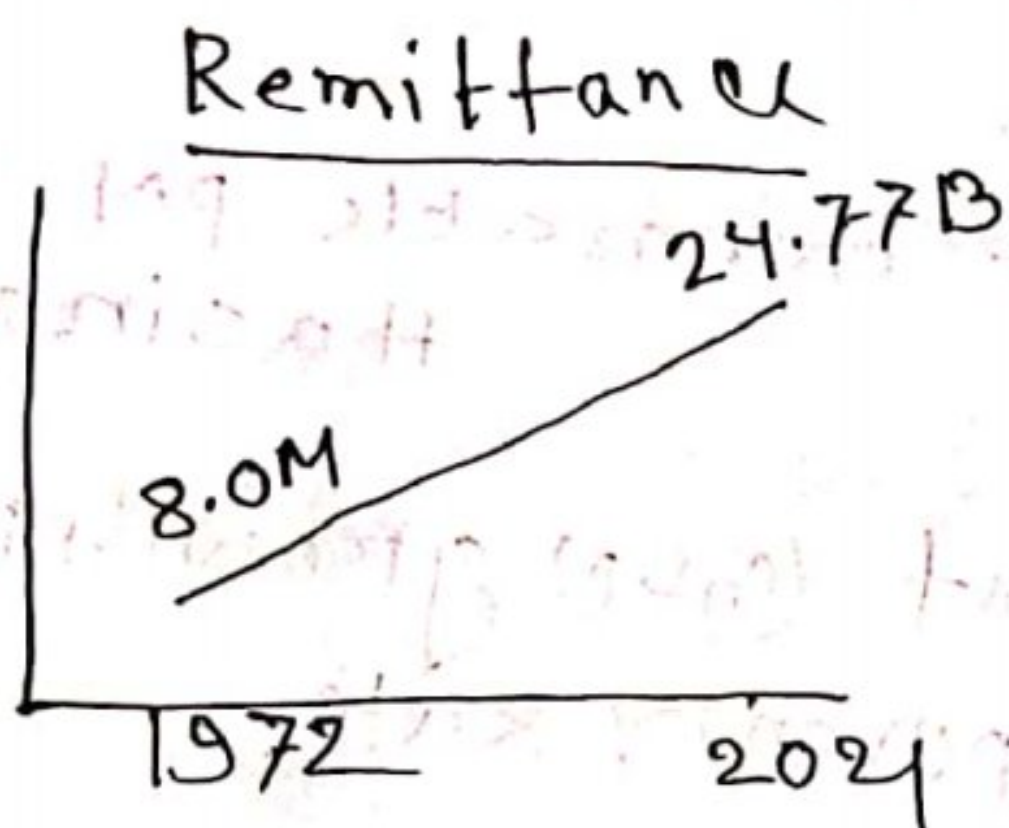 Remittance
24.77B
8.0M
1972
2021